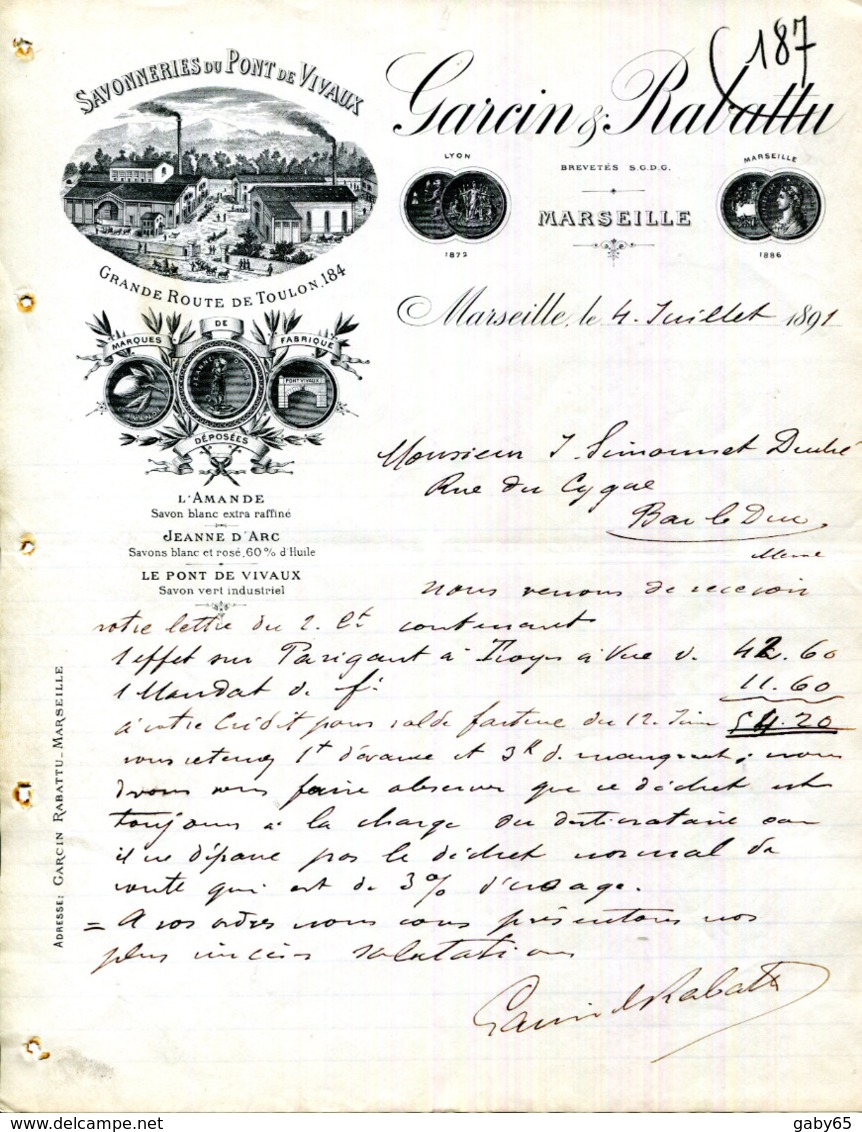 187
SAVONNERIES DU PONT DE VIVAUX
Garcin & Rabattu
BREVETÉS S.G.D.G.
MARSEILLE
LYON
1872
MARSEILLE
1886
GRANDE ROUTE DE TOULON, 184
MARQUES DE FABRIQUE
PONT VIVAUX
DÉPOSÉES
L'AMANDE
Savon blanc extra raffiné
JEANNE D'ARC
Savons blanc et rosé, 60% d'Huile
LE PONT DE VIVAUX
Savon vert industriel
ADRESSE: GARCIN RABATTU_MARSEILLE
Marseille, le 4. Juillet 1891
Monsieur J. Simonnet
Rue du Cygne
Bar le Duc
Meuse
Nous venons de recevoir
votre lettre du 2. Ct contenant
1 effet sur Parigaut à Troyes à vue d. 42.60
1 Mandat de f. 11.60
à votre Crédit pour solde facture du 12. Juin 54.20
vous retenez et 3k d. manquant; nous
devons vous faire observer que ce déchet est
toujours à la charge du destinataire car
il ne dépasse pas le déchet normal de
route qui est de 3% d'usage.
= A vos ordres nous vous présentons nos
plus sincères salutations
Garcin & Rabattu
delcampe.net
gaby65